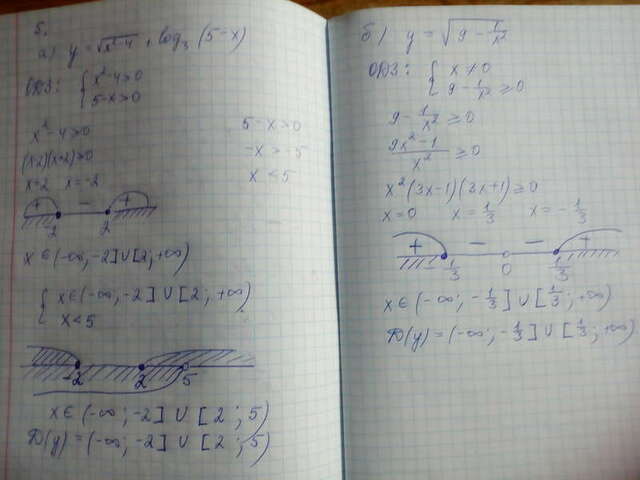 5.
а) y = √x²-4 + log₃ (5-x)
ОДЗ: { x²-4≥0
5-x>0
x²-4≥0
5-x>0
(x-2)(x+2)≥0
-x > -5
x=2 x=-2
x < 5
+ - +
-2 2
x ∈ (-∞; -2] ∪ [2; +∞)
{ x ∈ (-∞; -2] ∪ [2; +∞)
x < 5
-2 2 5
x ∈ (-∞; -2] ∪ [2; 5)
D(y) = (-∞; -2] ∪ [2; 5)
б) y = √9 - 1/x²
ОДЗ: { x ≠ 0
9 - 1/x² ≥ 0
9 - 1/x² ≥ 0
9x²-1/x² ≥ 0
x²(3x-1)(3x+1) ≥ 0
x=0 x=1/3 x=-1/3
+ - - +
-1/3 0 1/3
x ∈ (-∞; -1/3] ∪ [1/3; +∞)
D(y) = (-∞; -1/3] ∪ [1/3; +∞)